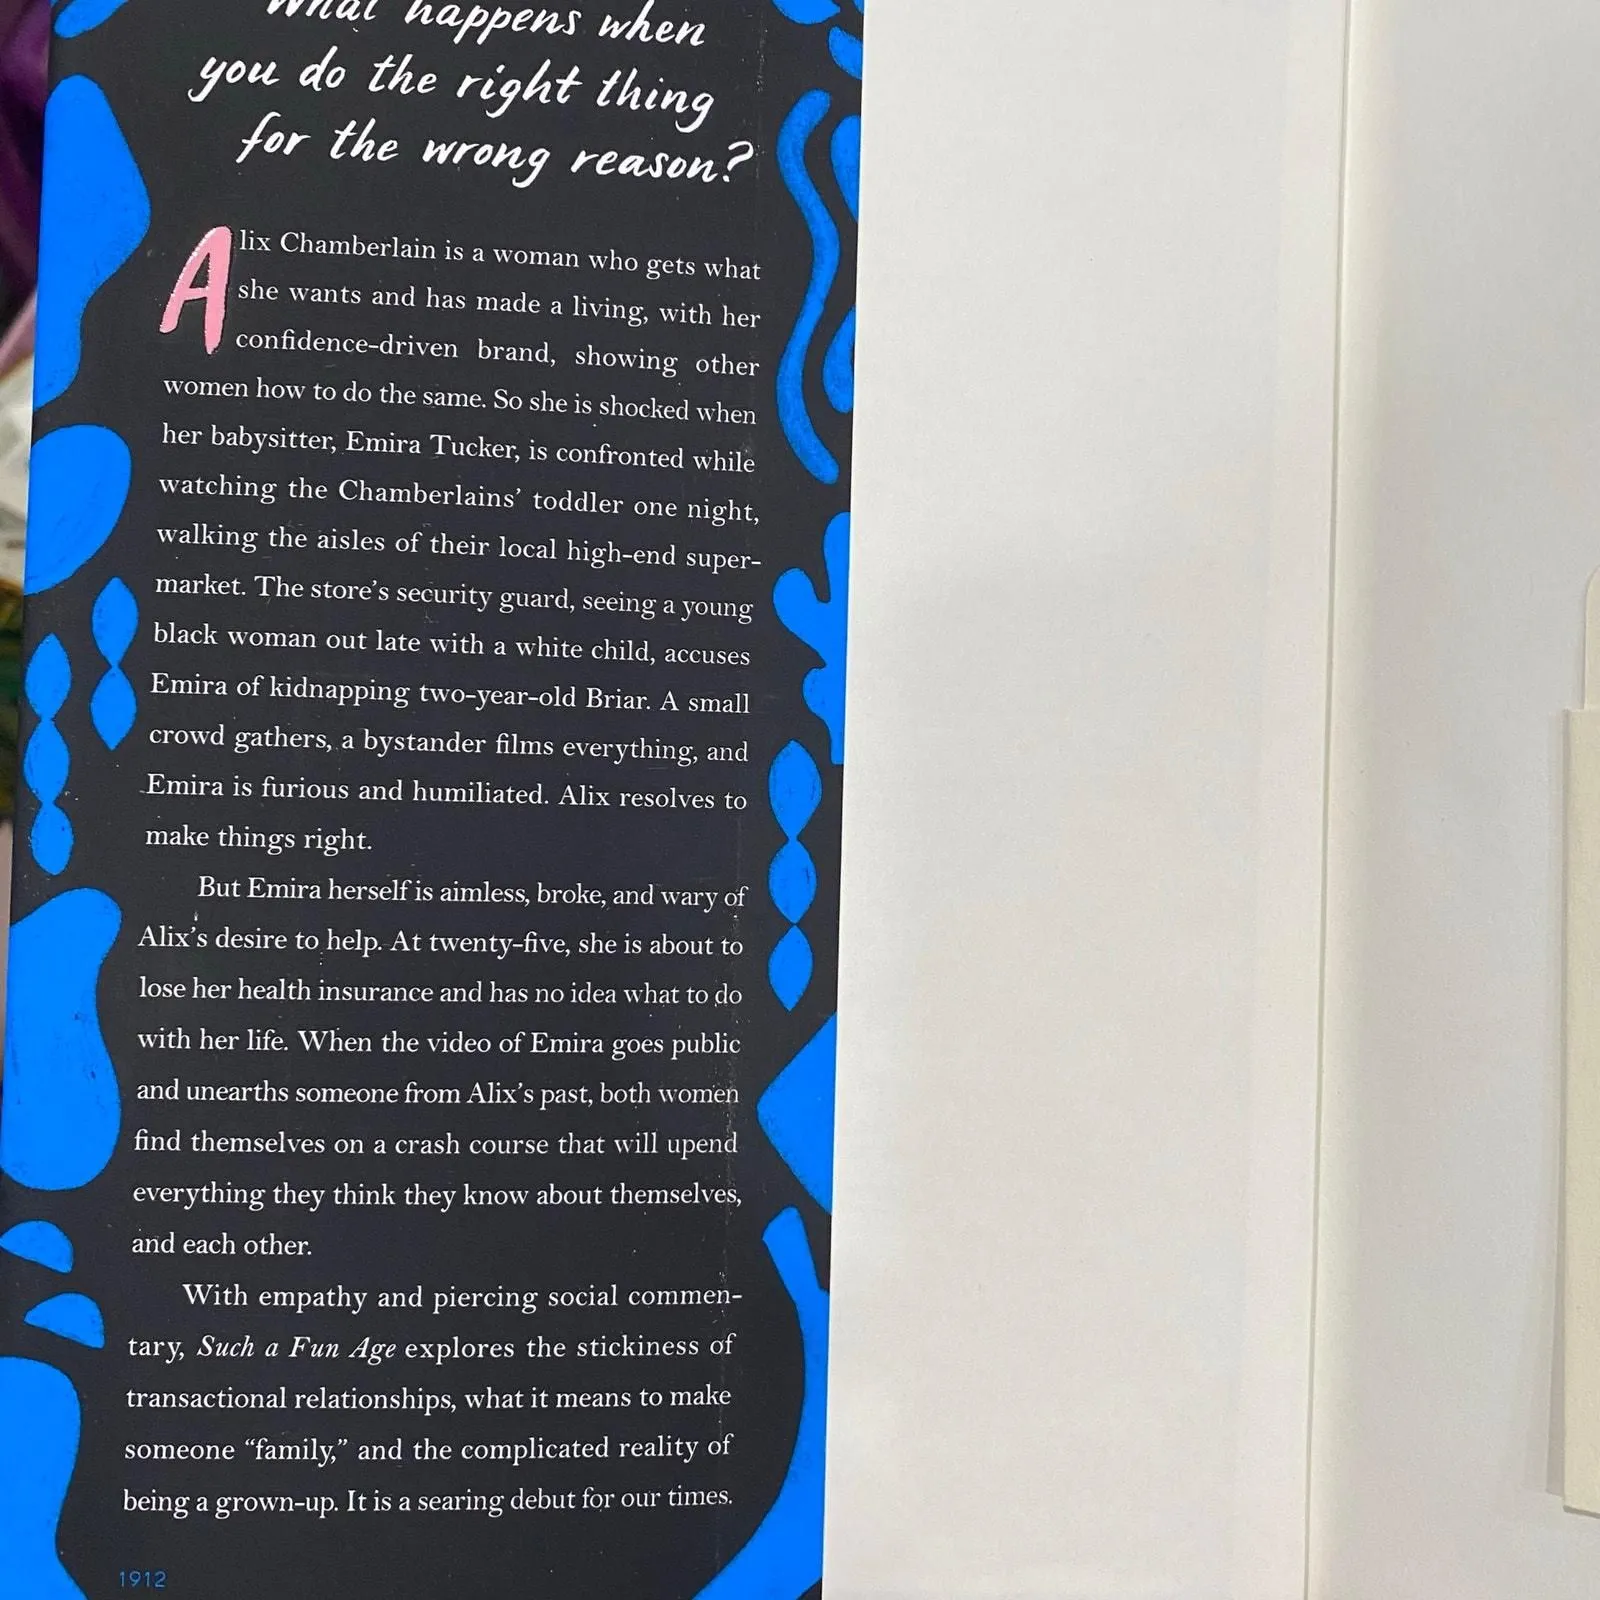 What happens when
you do the right thing
for the wrong reason?
Alix Chamberlain is a woman who gets what
she wants and has made a living, with her
confidence-driven brand, showing other
women how to do the same. So she is shocked when
her babysitter, Emira Tucker, is confronted while
watching the Chamberlains’ toddler one night,
walking the aisles of their local high-end super-
market. The store’s security guard, seeing a young
black woman out late with a white child, accuses
Emira of kidnapping two-year-old Briar. A small
crowd gathers, a bystander films everything, and
Emira is furious and humiliated. Alix resolves to
make things right.
But Emira herself is aimless, broke, and wary of
Alix’s desire to help. At twenty-five, she is about to
lose her health insurance and has no idea what to do
with her life. When the video of Emira goes public
and unearths someone from Alix’s past, both women
find themselves on a crash course that will upend
everything they think they know about themselves,
and each other.
With empathy and piercing social commen-
tary, Such a Fun Age explores the stickiness of
transactional relationships, what it means to make
someone “family,” and the complicated reality of
being a grown-up. It is a searing debut for our times.
1912